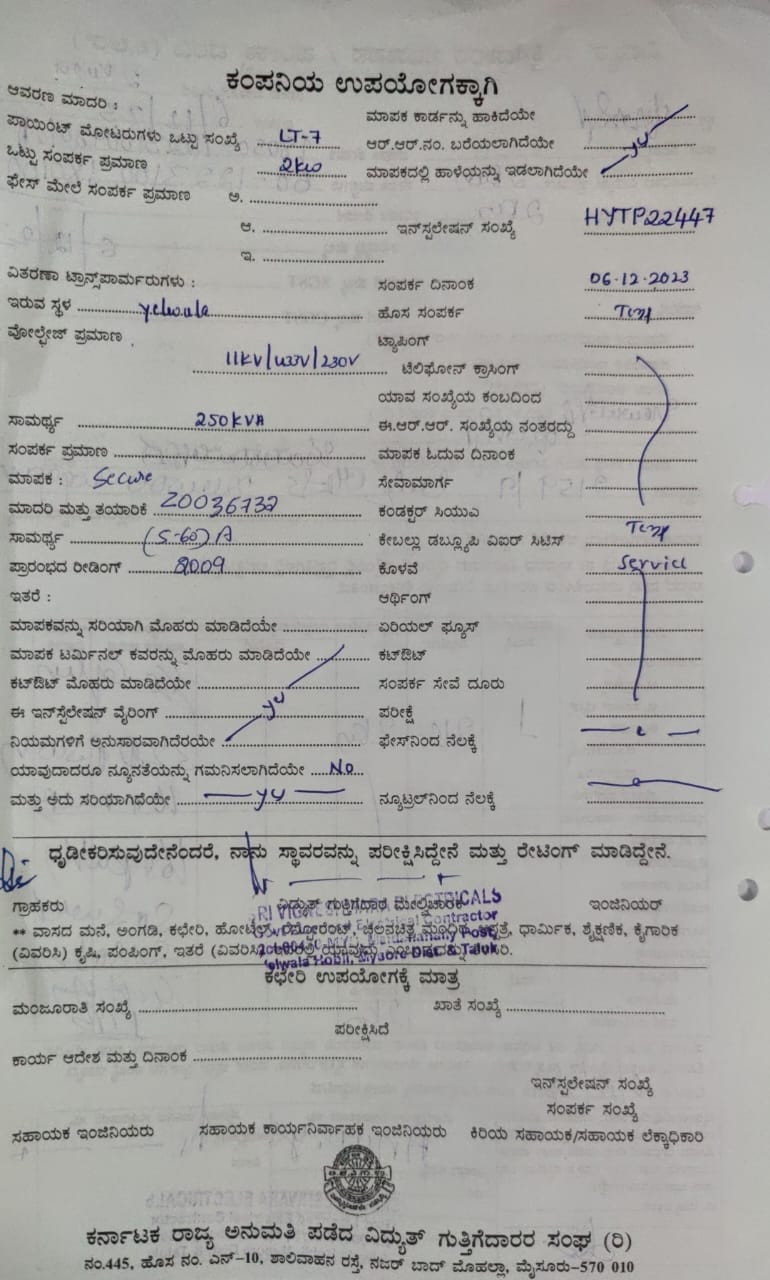 ಕಂಪನಿಯ ಉಪಯೋಗಕ್ಕಾಗಿ
ಆವರಣ ಮಾದರಿ :
ಮಾಪಕ ಕಾರ್ಡನ್ನು ಹಾಕಿದೆಯೇ
ಪಾಯಿಂಟ್ ಮೋಟರುಗಳು ಒಟ್ಟು ಸಂಖ್ಯೆ LT-7 ಆರ್.ಆರ್.ನಂ. ಬರೆಯಲಾಗಿದೆಯೇ
ಒಟ್ಟು ಸಂಪರ್ಕ ಪ್ರಮಾಣ 2kw ಮಾಪಕದಲ್ಲಿ ಹಾಳೆಯನ್ನು ಇಡಲಾಗಿದೆಯೇ
ಫೇಸ್ ಮೇಲೆ ಸಂಪರ್ಕ ಪ್ರಮಾಣ ಅ.
ಆ. ಇನ್‌ಸ್ಪಲೇಷನ್ ಸಂಖ್ಯೆ HYTP22447
ಇ.
ವಿತರಣಾ ಟ್ರಾನ್ಸ್‌ಪಾರ್ಮರುಗಳು : ಸಂಪರ್ಕ ದಿನಾಂಕ 06.12.2023
ಇರುವ ಸ್ಥಳ yelwala ಹೊಸ ಸಂಪರ್ಕ Temp
ವೋಲ್ಟೇಜ್ ಪ್ರಮಾಣ ಟ್ಯಾಪಿಂಗ್
11kV/433V/230V ಟೆಲಿಫೋನ್ ಕ್ರಾಸಿಂಗ್
ಯಾವ ಸಂಖ್ಯೆಯ ಕಂಬದಿಂದ
ಸಾಮರ್ಥ್ಯ 250kVA ಈ.ಆರ್.ಆರ್. ಸಂಖ್ಯೆಯ ನಂತರದ್ದು
ಸಂಪರ್ಕ ಪ್ರಮಾಣ ಮಾಪಕ ಓದುವ ದಿನಾಂಕ
ಮಾಪಕ : Secure ಸೇವಾಮಾರ್ಗ
ಮಾದರಿ ಮತ್ತು ತಯಾರಿಕೆ Z0036732 ಕಂಡಕ್ಟರ್ ಸಿಯುಎ
ಸಾಮರ್ಥ್ಯ (5-60) A ಕೇಬಲ್ಲು ಡಬ್ಲ್ಯೂಪಿ ವಿಐರ್ ಸಿಟಿಸ್ Temp
ಪ್ರಾರಂಭದ ರೀಡಿಂಗ್ ಕೊಳವೆ Service
ಇತರೆ : ಆರ್ಥಿಂಗ್
ಮಾಪಕವನ್ನು ಸರಿಯಾಗಿ ಮೊಹರು ಮಾಡಿದೆಯೇ ಏರಿಯಲ್ ಫ್ಯೂಸ್
ಮಾಪಕ ಟರ್ಮಿನಲ್ ಕವರನ್ನು ಮೊಹರು ಮಾಡಿದೆಯೇ ಕಟ್‌ಔಟ್
ಕಟ್‌ಔಟ್ ಮೊಹರು ಮಾಡಿದೆಯೇ ಸಂಪರ್ಕ ಸೇವೆ ದೂರು
ಈ ಇನ್‌ಸ್ಪೆಲೇಷನ್ ವೈರಿಂಗ್ ಪರೀಕ್ಷೆ
ನಿಯಮಗಳಿಗೆ ಅನುಸಾರವಾಗಿದೆರಯೇ ಫೇಸ್‌ನಿಂದ ನೆಲಕ್ಕೆ
ಯಾವುದಾದರೂ ನ್ಯೂನತೆಯನ್ನು ಗಮನಿಸಲಾಗಿದೆಯೇ No
ಮತ್ತು ಅದು ಸರಿಯಾಗಿದೆಯೇ ನ್ಯೂಟ್ರಲ್‌ನಿಂದ ನೆಲಕ್ಕೆ
ಧೃಡೀಕರಿಸುವುದೇನೆಂದರೆ, ನಾನು ಸ್ಥಾವರವನ್ನು ಪರೀಕ್ಷಿಸಿದ್ದೇನೆ ಮತ್ತು ರೇಟಿಂಗ್ ಮಾಡಿದ್ದೇನೆ.
ಗ್ರಾಹಕರು ವಿದ್ಯುತ್ ಗುತ್ತಿಗೆದಾರ ಮೇಲ್ವಿಚಾರಕ ಇಂಜಿನಿಯರ್
** ವಾಸದ ಮನೆ, ಅಂಗಡಿ, ಕಛೇರಿ, ಹೋಟೆಲ್, ರೆಸ್ಟೋರೆಂಟ್, ಚಲನಚಿತ್ರ ಮಂದಿರ, ಆಸ್ಪತ್ರೆ, ಧಾರ್ಮಿಕ, ಶೈಕ್ಷಣಿಕ, ಕೈಗಾರಿಕ
(ವಿವರಿಸಿ) ಕೃಷಿ, ಪಂಪಿಂಗ್, ಇತರೆ
ಕಛೇರಿ ಉಪಯೋಗಕ್ಕೆ ಮಾತ್ರ
ಮಂಜೂರಾತಿ ಸಂಖ್ಯೆ ಖಾತೆ ಸಂಖ್ಯೆ
ಪರೀಕ್ಷಿಸಿದೆ
ಕಾರ್ಯ ಆದೇಶ ಮತ್ತು ದಿನಾಂಕ
ಇನ್‌ಸ್ಪಲೇಷನ್ ಸಂಖ್ಯೆ
ಸಂಪರ್ಕ ಸಂಖ್ಯೆ
ಸಹಾಯಕ ಇಂಜಿನಿಯರು ಸಹಾಯಕ ಕಾರ್ಯನಿರ್ವಾಹಕ ಇಂಜಿನಿಯರು ಕಿರಿಯ ಸಹಾಯಕ/ಸಹಾಯಕ ಲೆಕ್ಕಾಧಿಕಾರಿ
ಕರ್ನಾಟಕ ರಾಜ್ಯ ಅನುಮತಿ ಪಡೆದ ವಿದ್ಯುತ್ ಗುತ್ತಿಗೆದಾರರ ಸಂಘ (ರಿ)
ನಂ.445, ಹೊಸ ನಂ. ಎನ್-10, ಶಾಲಿವಾಹನ ರಸ್ತೆ, ನಜರ್ ಬಾದ್ ಮೊಹಲ್ಲಾ, ಮೈಸೂರು-570 010